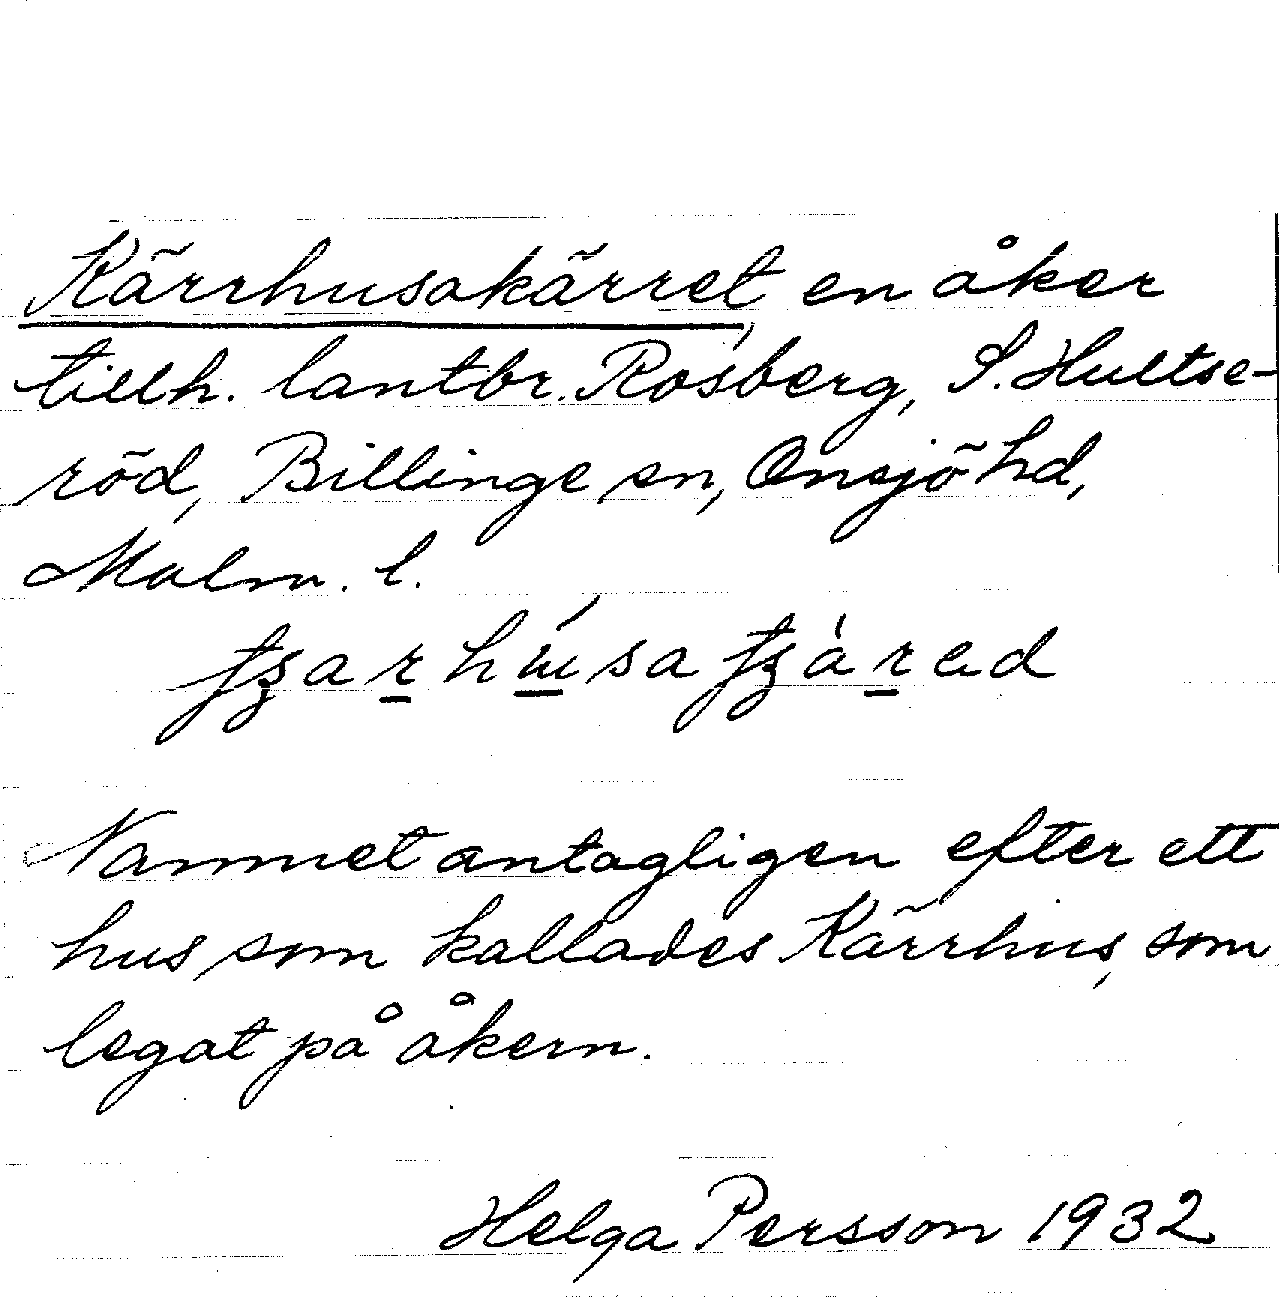 Kärrhusakärret, en åker
tillh. lantbr. Rosberg, S. Hultse-
röd, Billinge sn, Onsjö hd,
Malm. l.
Namnet antagligen efter ett
hus som kallades Kärrhus, som
legat på åkern.
Helga Persson 1932